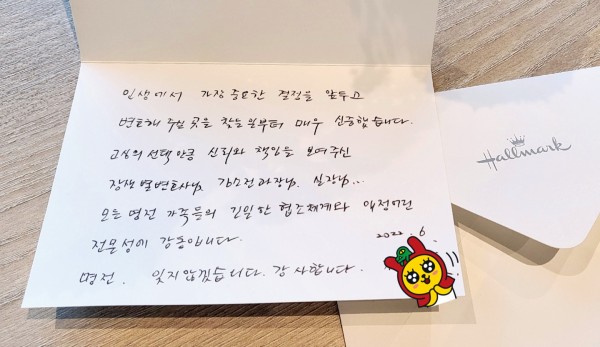 인생에서 가장 중요한 결정을 앞두고
변호해 주실 곳을 찾는 일부터 매우 신중합니다.
고심의 선택만큼 신뢰와 책임을 보여주신
장샛별변호사님, 김소진과장님, 실장님...
모든 명전 가족들의 긴밀한 협조체계와 애정어린
전문성에 감동입니다.
2022. 6
명전. 잊지않겠습니다. 감사합니다.
Hallmark